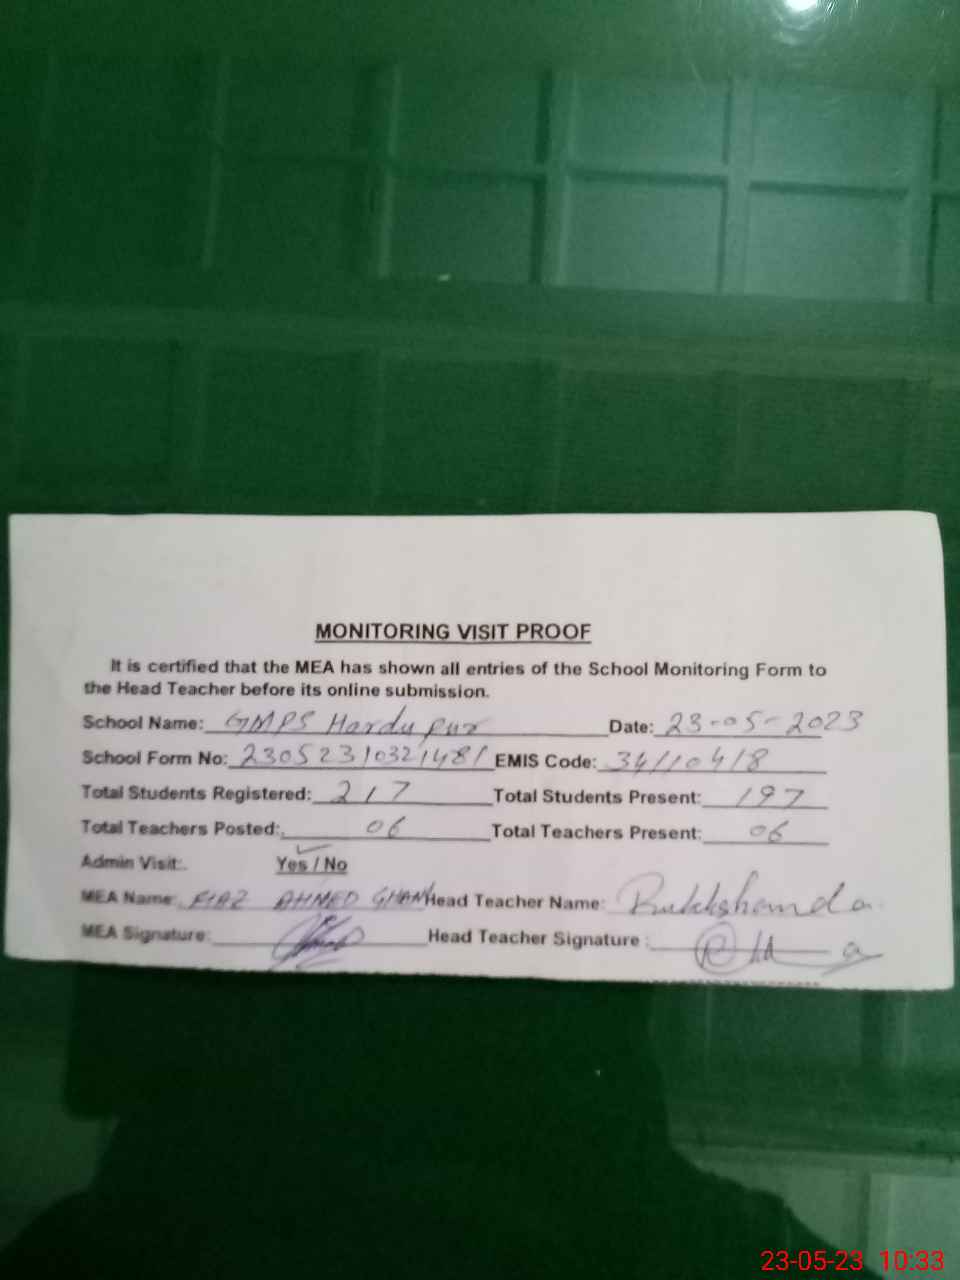 MONITORING VISIT PROOF
It is certified that the MEA has shown all entries of the School Monitoring Form to
the Head Teacher before its online submission.
School Name: GMPS Hardupur Date: 23-05-2023
School Form No: 23052310321481 EMIS Code: 34110418
Total Students Registered: 217 Total Students Present: 197
Total Teachers Posted: 06 Total Teachers Present: 06
Admin Visit: Yes / No
MEA Name: FIAZ AHMED GHANI Head Teacher Name: Rukhshanda
MEA Signature: Head Teacher Signature :
23-05-23 10:33